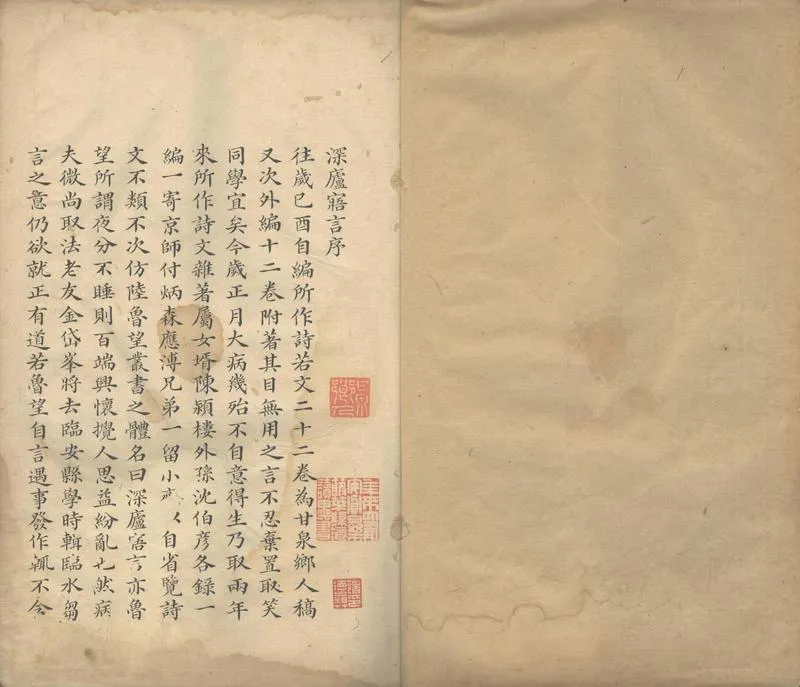 深廬寤言序
往歲己酉自編所作詩若文二十二卷為甘泉鄉人稿
又次外編十二卷附著其目無用之言不忍棄置取笑
同學宜矣今歲正月大病幾殆不自意得生乃取兩年
來所作詩文雜著屬女壻陳穎樓外孫沈伯彥各録一
編一寄京師付炳森應溥兄弟一留小 自省覽詩
文不類不次仿陸魯望叢書之體名曰深廬寤言亦魯
望所謂夜分不睡則百端興懷攪人思益紛亂也然病
夫微尚取法老友金岱峯將去臨安縣學時輯臨水芻
言之意仍欲就正有道若魯望自言遇事發作輒不含